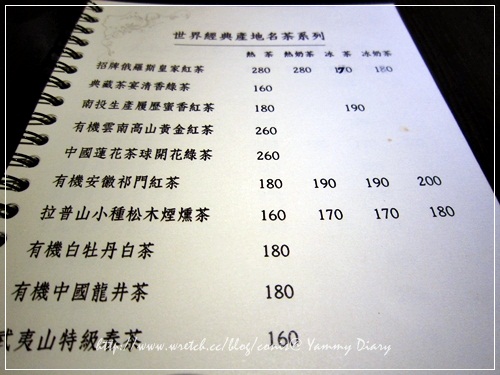 世界經典產地名茶系列
熱 茶 熱奶茶 冰 茶 冰奶茶
招牌俄羅斯皇家紅茶 280 280 170 180
典藏茶宴清香綠茶 160
南投生產履歷蜜香紅茶 180 190
有機雲南高山黃金紅茶 260
中國蓮花茶球開花綠茶 260
有機安徽祁門紅茶 180 190 190 200
拉普山小種松木煙燻茶 160 170 170 180
有機白牡丹白茶 180
有機中國龍井茶 180
武夷山特級春茶 160
Yammy Diary